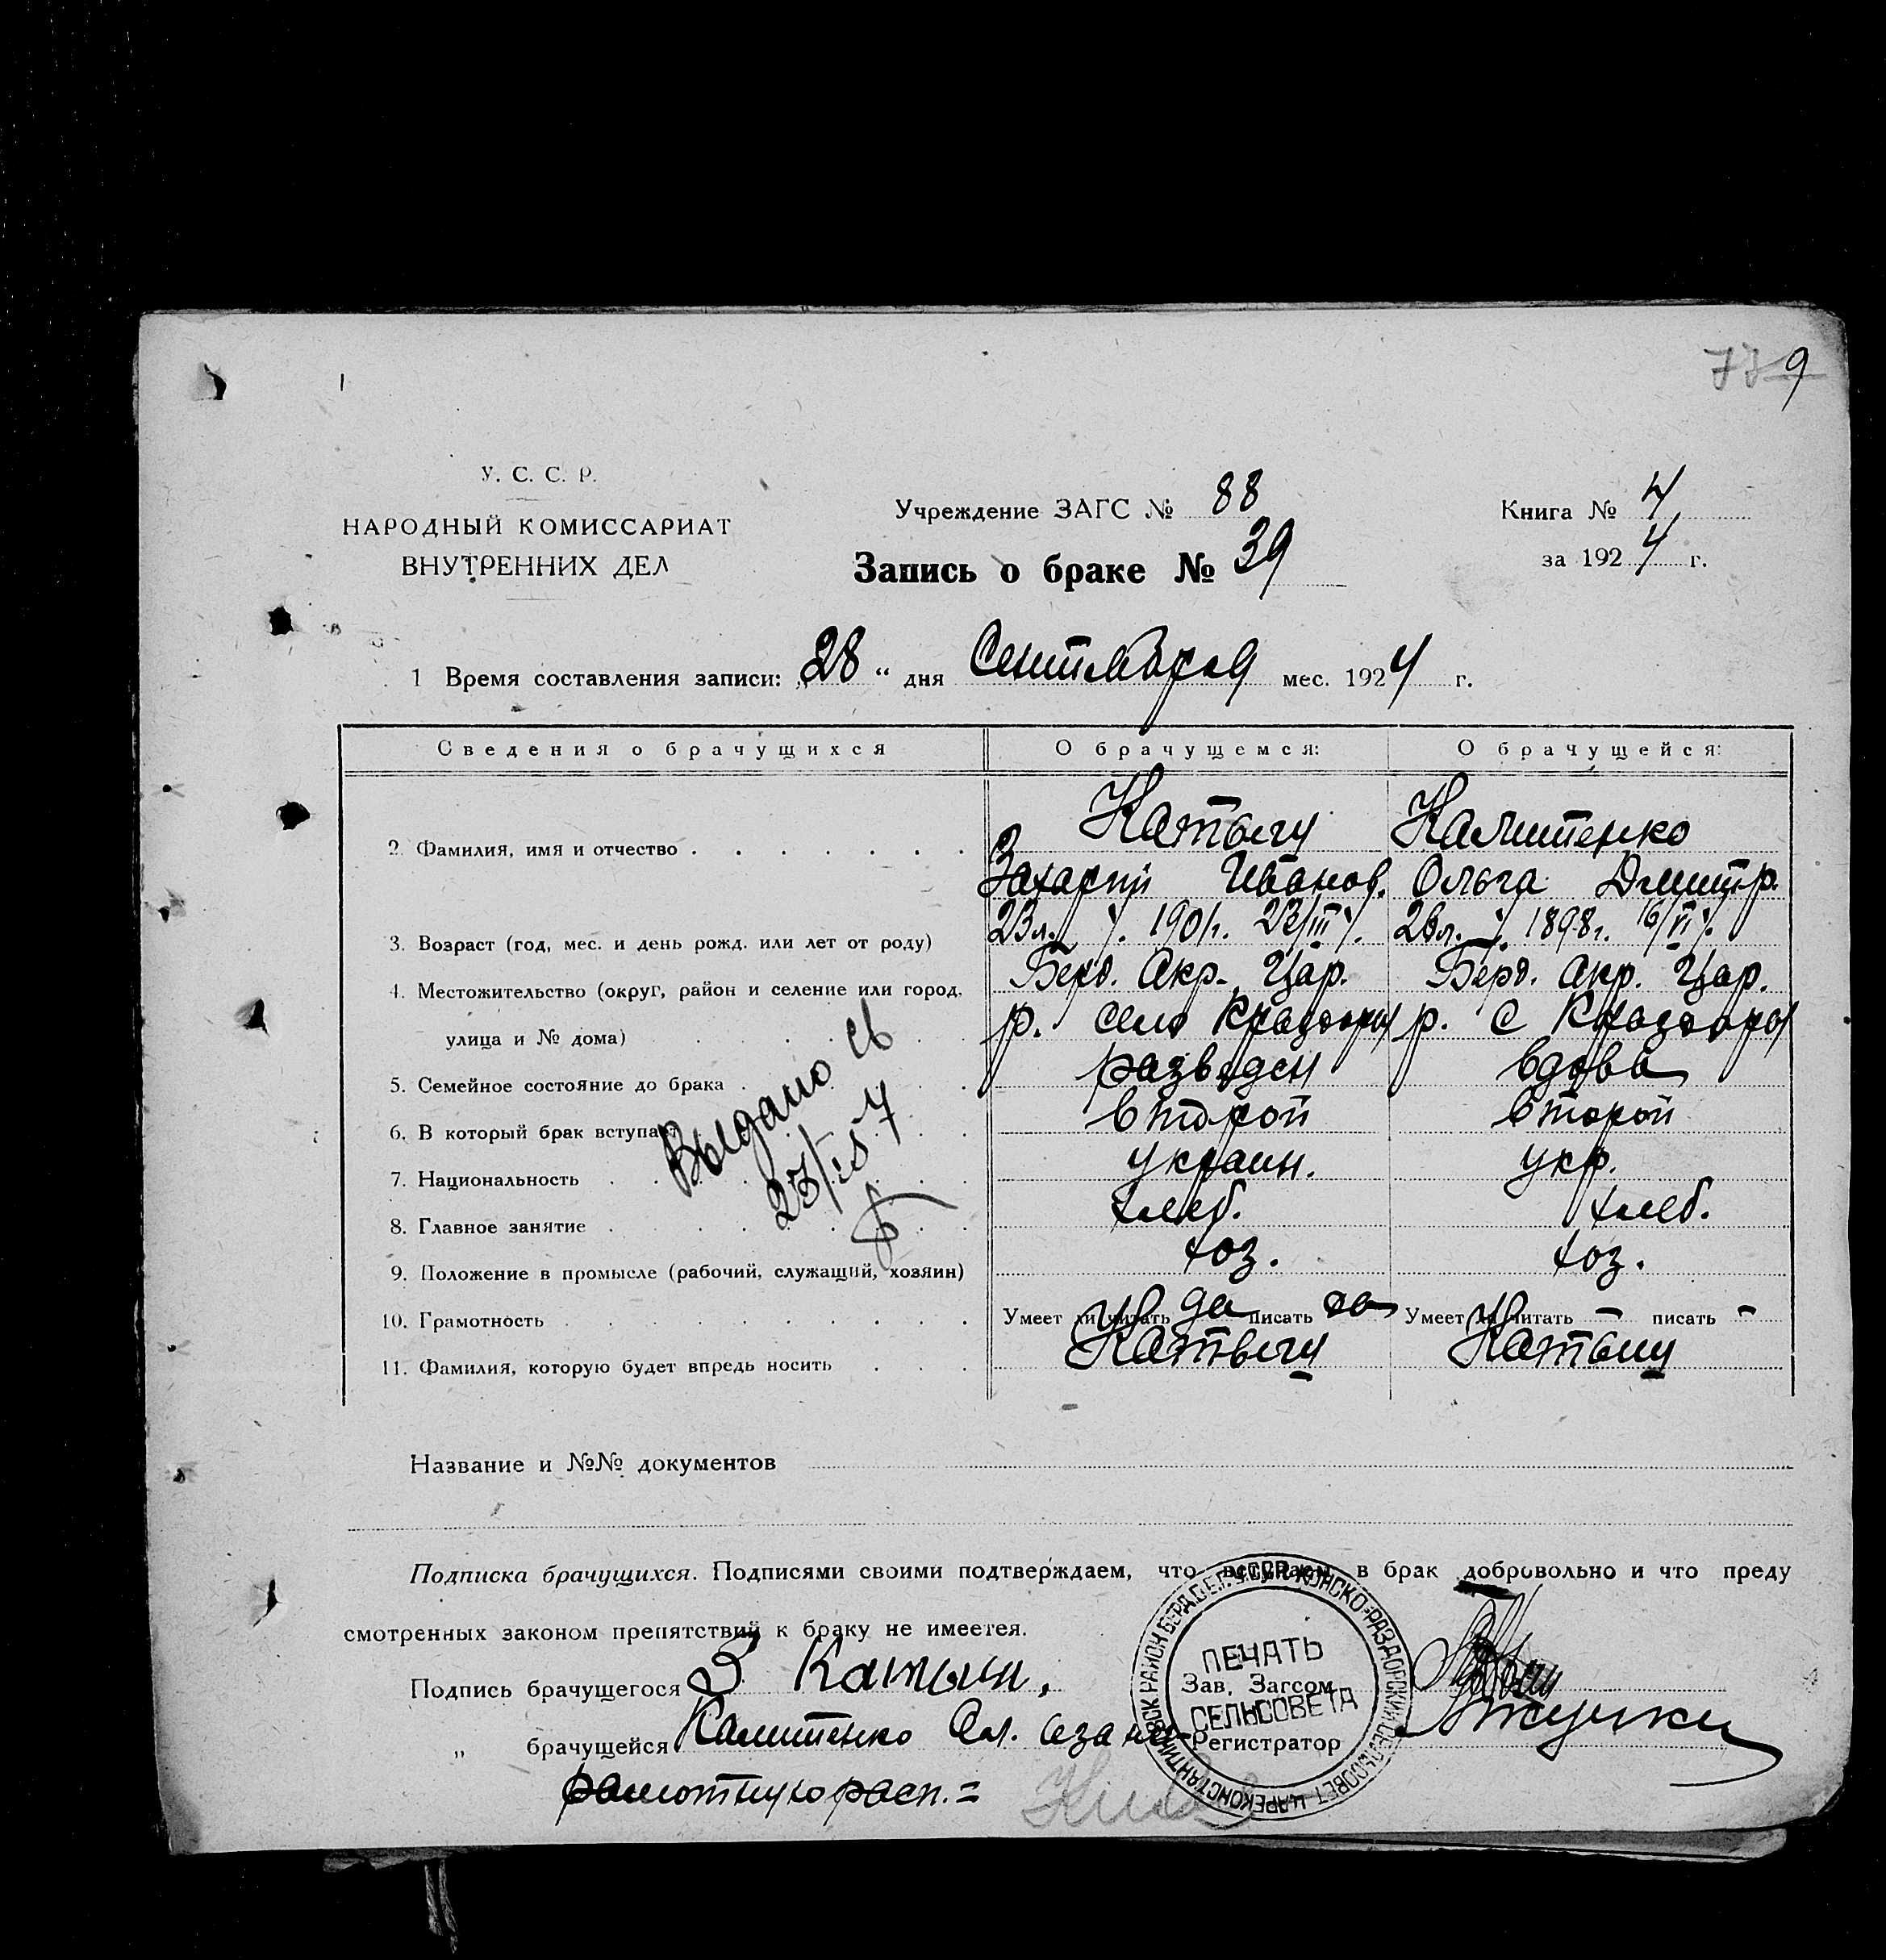 9
У. С. С. Р.
НАРОДНЫЙ КОМИССАРИАТ
ВНУТРЕННИХ ДЕЛ
Учреждение ЗАГС № 88
Запись о браке № 39
Книга № 4
за 1924 г.
1 Время составления записи: „28“ дня Сентября мес. 1924 г.
Сведения о брачущихся О брачущемся: О брачущейся:
2. Фамилия, имя и отчество Калитенко
Захарий Иванов. Ольга Дмитр.
3. Возраст (год, мес. и день рожд. или лет от роду) 23 л. 1901 г. 1898 г.
4. Местожительство (округ, район и селение или город, Берд. Окр. Цар. Берд. Окр. Цар.
улица и № дома) р. село Кразаоры р. с Кразаоры
5. Семейное состояние до брака разведен вдова
6. В который брак вступает второй второй
7. Национальность украин. укр.
8. Главное занятие хлеб. хлеб.
9. Положение в промысле (рабочий, служащий, хозяин) хоз. хоз.
10. Грамотность Умеет ли читать да писать да Умеет ли читать — писать —
11. Фамилия, которую будет впредь носить
Выдано св
Название и №№ документов
Подписка брачущихся. Подписями своими подтверждаем, что вступаем в брак добровольно и что преду
смотренных законом препятствий к браку не имеется.
Подпись брачущегося З
„ брачущейся Калитенко Ол. за не-
грамотную расп. =
Зав. Загсом
Регистратор
ПЕЧАТЬ
СЕЛЬСОВЕТА
У.С.С.Р. КОНСКО-РАЗДОРСКИЙ СЕЛЬСОВЕТ ЦАРЕКОНСТАНТИНОВСК РАЙОН БЕРД.